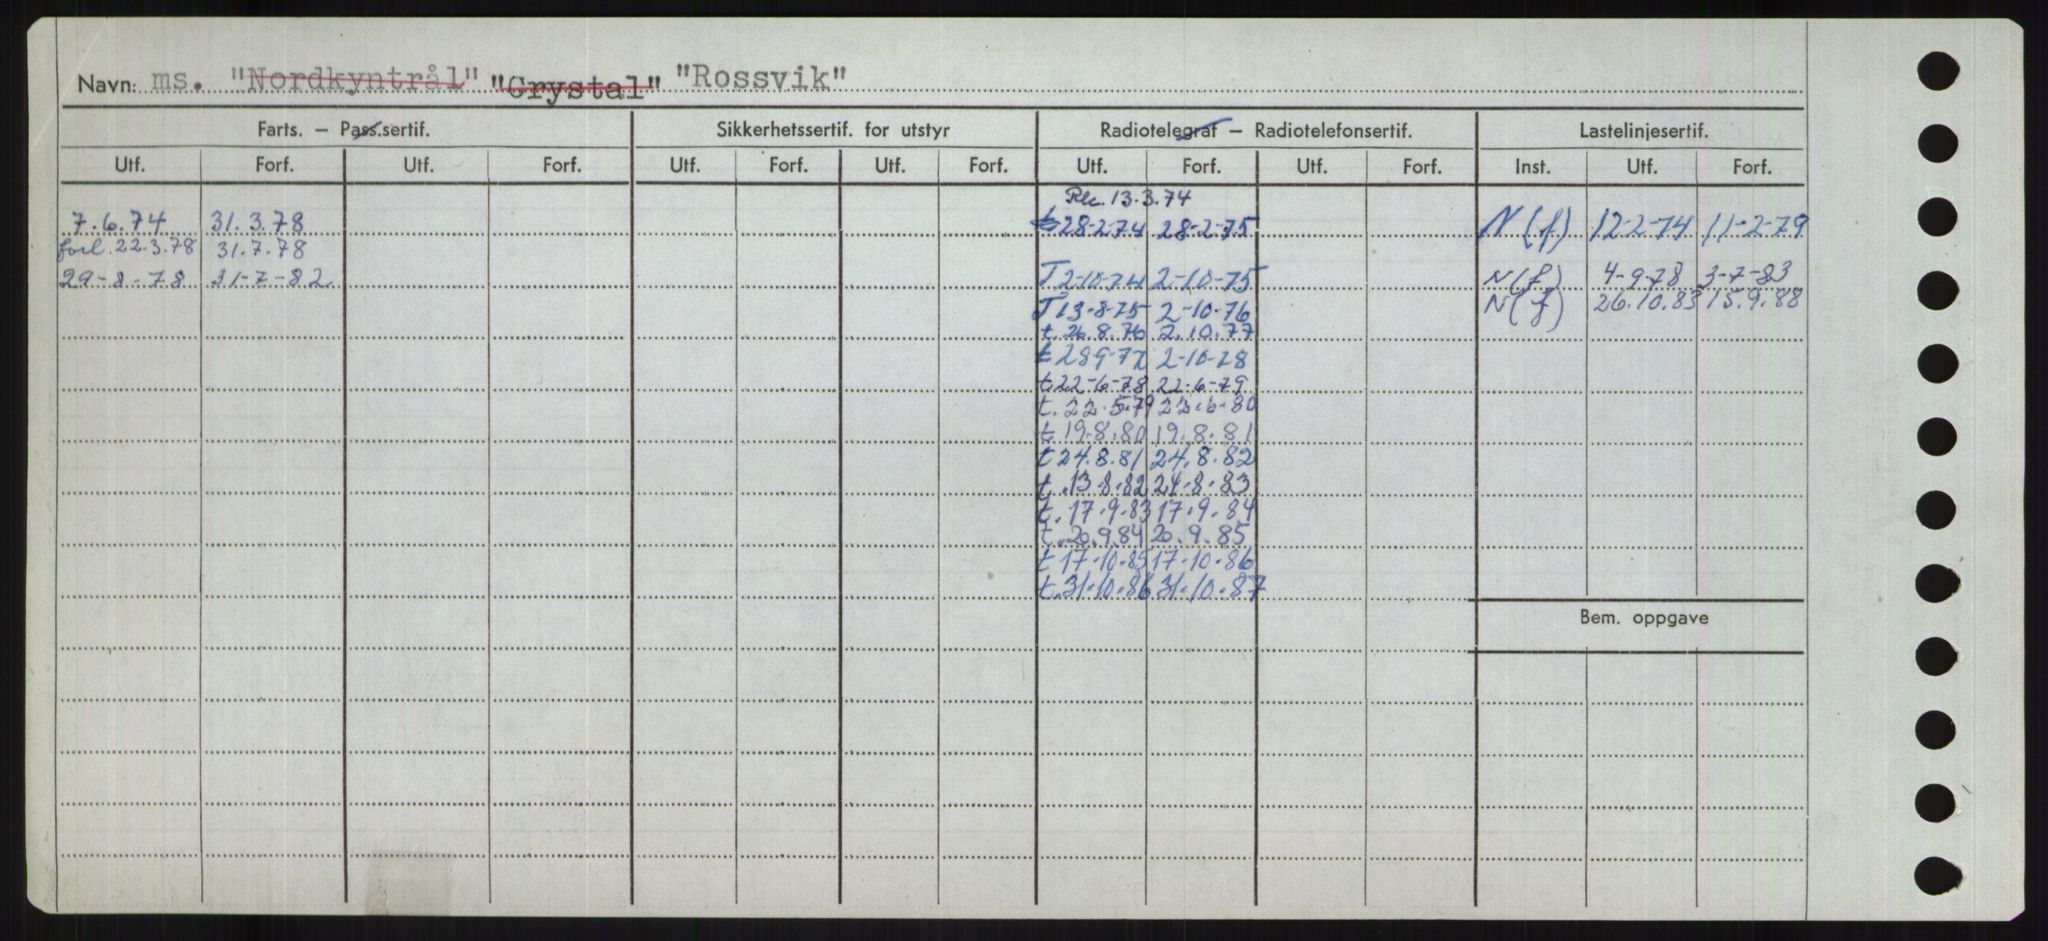 Navn: ms. "Nordkyntrål" "Crystal" "Rossvik"
Farts. – Pass.sertif. Sikkerhetssertif. for utstyr Radiotelegraf – Radiotelefonsertif. Lastelinjesertif.
Utf. Forf. Utf. Forf. Utf. Forf. Utf. Forf. Utf. Forf. Utf. Forf. Inst. Utf. Forf.
13.3.74
7.6.74 31.3.78 t 28-2-74 28-2-75 N(f) 12-2-74 11-2-79
forl. 22.3.78 31.7.78
29-8-78 31-7-82 T 2-10-74 2-10-75 N(f) 4-9-78 3-7-83
T 13-8-75 2-10-76 N(f) 26.10.83 15.9.88
t. 26.8.76 2.10.77
t 28-9-77 2-10-78
t. 22-6-78 22-6-79
t. 22.5.79 22.6-80
t. 19.8.80 19.8.81
t 24.8.81 24.8.82
t. 13.8.82 24.8.83
t. 17.9.83 17.9.84
t. 20.9.84 20.9.85
t 17.10.85 17.10.86
t. 31.10.86 31.10.87
Bem. oppgave